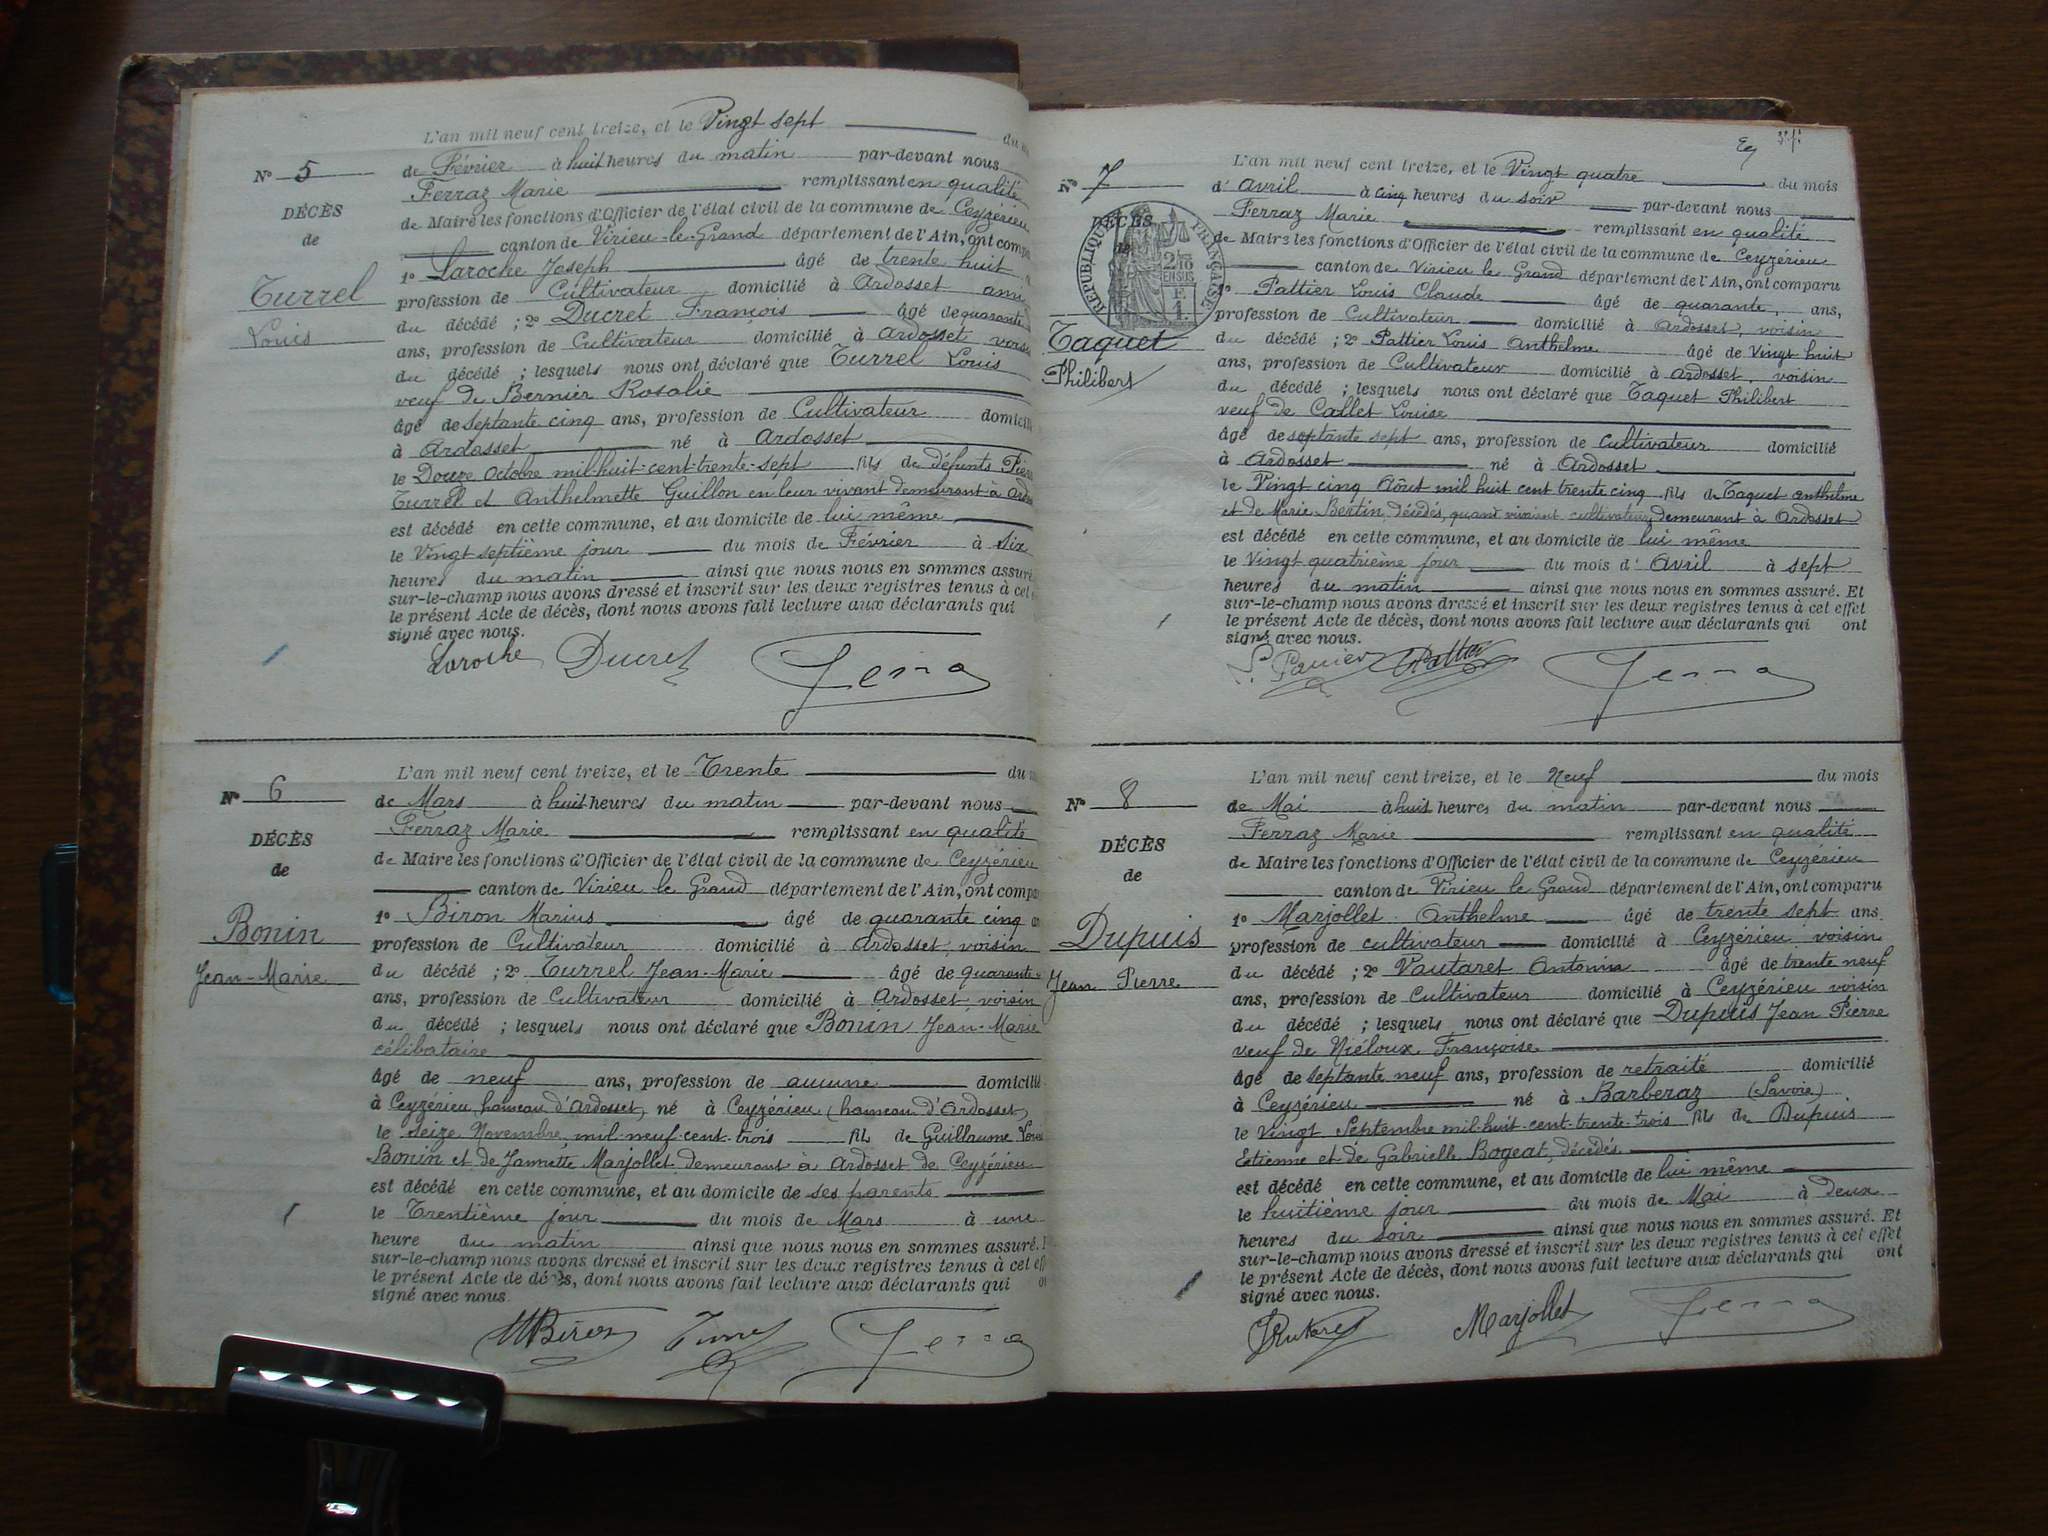 L'an mil neuf cent treize, et le Vingt sept du
N° 5
de Février à huit heures du matin par-devant nous
Ferraz Marie remplissant en qualité
DÉCÈS
de Maire les fonctions d'Officier de l'état civil de la commune de Ceyzérieu
de
canton de Virieu-le-Grand département de l'Ain, ont compa
1° Laroche Joseph âgé de trente huit
Turrel
profession de Cultivateur domicilié à Ardosset ami
Louis
du décédé ; 2° Ducret François âgé de quarante
ans, profession de Cultivateur domicilié à Ardosset vois
du décédé ; lesquels nous ont déclaré que Turrel Louis
veuf de Bernier Rosalie
âgé de septante cinq ans, profession de Cultivateur domicili
à Ardosset né à Ardosset
le Douze Octobre mil-huit-cent-trente-sept fils de défunts Pier
Turrel et Anthelmette Guillon en leur vivant demeurant à Ardos
est décédé en cette commune, et au domicile de lui même
le Vingt septième jour du mois de Février à six
heures du matin ainsi que nous nous en sommes assuré
sur-le-champ nous avons dressé et inscrit sur les deux registres tenus à cet
le présent Acte de décès, dont nous avons fait lecture aux déclarants qui
signé avec nous.
Laroche Ducret Ferra
L'an mil neuf cent treize, et le Trente du
N° 6
de Mars à huit heures du matin par-devant nous
Ferraz Marie remplissant en qualité
DÉCÈS
de Maire les fonctions d'Officier de l'état civil de la commune de Ceyzérieu
de
canton de Virieu le Grand département de l'Ain, ont compa
1° Biron Marius âgé de quarante cinq an
Bonin
profession de Cultivateur domicilié à Ardosset, voisin
Jean-Marie
du décédé ; 2° Turrel Jean-Marie âgé de quarante
ans, profession de Cultivateur domicilié à Ardosset voisin
du décédé ; lesquels nous ont déclaré que Bonin Jean-Marie
célibataire
âgé de neuf ans, profession de aucune domicilié
à Ceyzérieu (hameau d'Ardosset) né à Ceyzérieu (hameau d'Ardosset)
le seize Novembre mil-neuf-cent-trois fils de Guillaume Loui
Bonin et de Jannette Marjollet demeurant à Ardosset de Ceyzérieu
est décédé en cette commune, et au domicile de ses parents
le Trentième jour du mois de Mars à une
heure du matin ainsi que nous nous en sommes assuré.
sur-le-champ nous avons dressé et inscrit sur les deux registres tenus à cet eff
le présent Acte de décès, dont nous avons fait lecture aux déclarants qui o
signé avec nous.
MBiron Turrel Ferra
L'an mil neuf cent treize, et le Vingt quatre du mois
N° 7
d' Avril à cinq heures du soir par-devant nous
Ferraz Marie remplissant en qualité
DÉCÈS
de
RÉPUBLIQUE FRANÇAISE
de Maire les fonctions d'Officier de l'état civil de la commune de Ceyzérieu
canton de Virieu le Grand département de l'Ain, ont comparu
1° Pattier Louis Claude âgé de quarante ans,
profession de Cultivateur domicilié à Ardosset, voisin
Taquet
du décédé ; 2° Pattier Louis Anthelme âgé de Vingt huit
Philibert
ans, profession de Cultivateur domicilié à Ardosset, voisin
du décédé ; lesquels nous ont déclaré que Taquet Philibert
veuf de Callet Louise
âgé de septante sept ans, profession de Cultivateur domicilié
à Ardosset né à Ardosset
le Vingt cinq Août mil huit cent trente cinq fils de Taquet Anthelme
et de Marie Bertin, décédés, quand vivaient cultivateurs demeurant à Ardosset
est décédé en cette commune, et au domicile de lui même
le Vingt quatrième jour du mois d' Avril à sept
heures du matin ainsi que nous nous en sommes assuré. Et
sur-le-champ nous avons dressé et inscrit sur les deux registres tenus à cet effet
le présent Acte de décès, dont nous avons fait lecture aux déclarants qui ont
signé avec nous.
Pattier Ferra
L'an mil neuf cent treize, et le Neuf du mois
N° 8
de Mai à huit heures du matin par-devant nous
Ferraz Marie remplissant en qualité
DÉCÈS
de Maire les fonctions d'Officier de l'état civil de la commune de Ceyzérieu
de
canton de Virieu le Grand département de l'Ain, ont comparu
1° Marjollet Anthelme âgé de trente sept ans.
Dupuis
profession de cultivateur domicilié à Ceyzérieu voisin
Jean Pierre
du décédé ; 2° Vautaret Antonin âgé de trente neuf
ans, profession de Cultivateur domicilié à Ceyzérieu voisin
du décédé ; lesquels nous ont déclaré que Dupuis Jean Pierre
veuf de Niéloux Françoise
âgé de septante neuf ans, profession de retraité domicilié
à Ceyzérieu né à Barberaz (Savoie)
le Vingt Septembre mil-huit-cent-trente-trois fils de Dupuis
Etienne et de Gabrielle Bogeat, décédés
est décédé en cette commune, et au domicile de lui même
le huitième jour du mois de Mai à deux
heures du soir ainsi que nous nous en sommes assuré. Et
sur-le-champ nous avons dressé et inscrit sur les deux registres tenus à cet effet
le présent Acte de décès, dont nous avons fait lecture aux déclarants qui ont
signé avec nous.
Marjollet Ferra